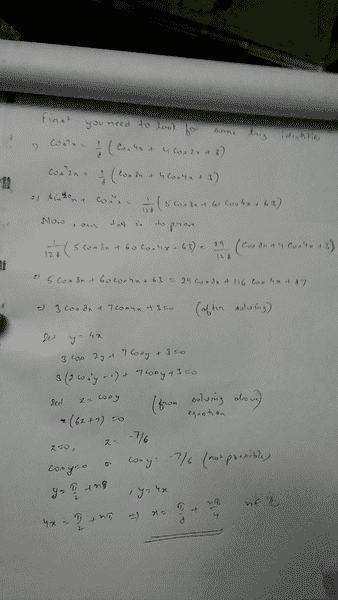 First you need to look for some trig identities
1) Cos⁴x = 1/8 ( Cos 4x + 4 Cos 2x + 3 )
Cos⁴2x = 1/8 ( Cos 8x + 4 Cos 4x + 3 )
2) Sin¹⁰x + Cos¹⁰x = 1/128 ( 5 Cos 8x + 60 Cos 4x + 63 )
Now, our is to prove
1/128 ( 5 cos 8x + 60 Cos 4x + 63 ) = 29/128 ( Cos 8x + 4 Cos 4x + 3 )
5 cos 8x + 60 cos 4x + 63 = 29 cos 8x + 116 cos 4x + 87
=> 3 cos 8x + 7 cos 4x + 3 = 0 (after solving)
Let y = 4x
3 cos 2y + 7 cos y + 3 = 0
3 (2 cos²y - 1) + 7 cos y + 3 = 0
Let z = cos y (from solving above equation
z (6z + 7) = 0
z = 0, z = -7/6
cos y = 0 or cos y = -7/6 (not possible)
y = π/2 + nπ , y = 4x
4x = π/2 + nπ => x = π/8 + nπ/4 n ∈ Z